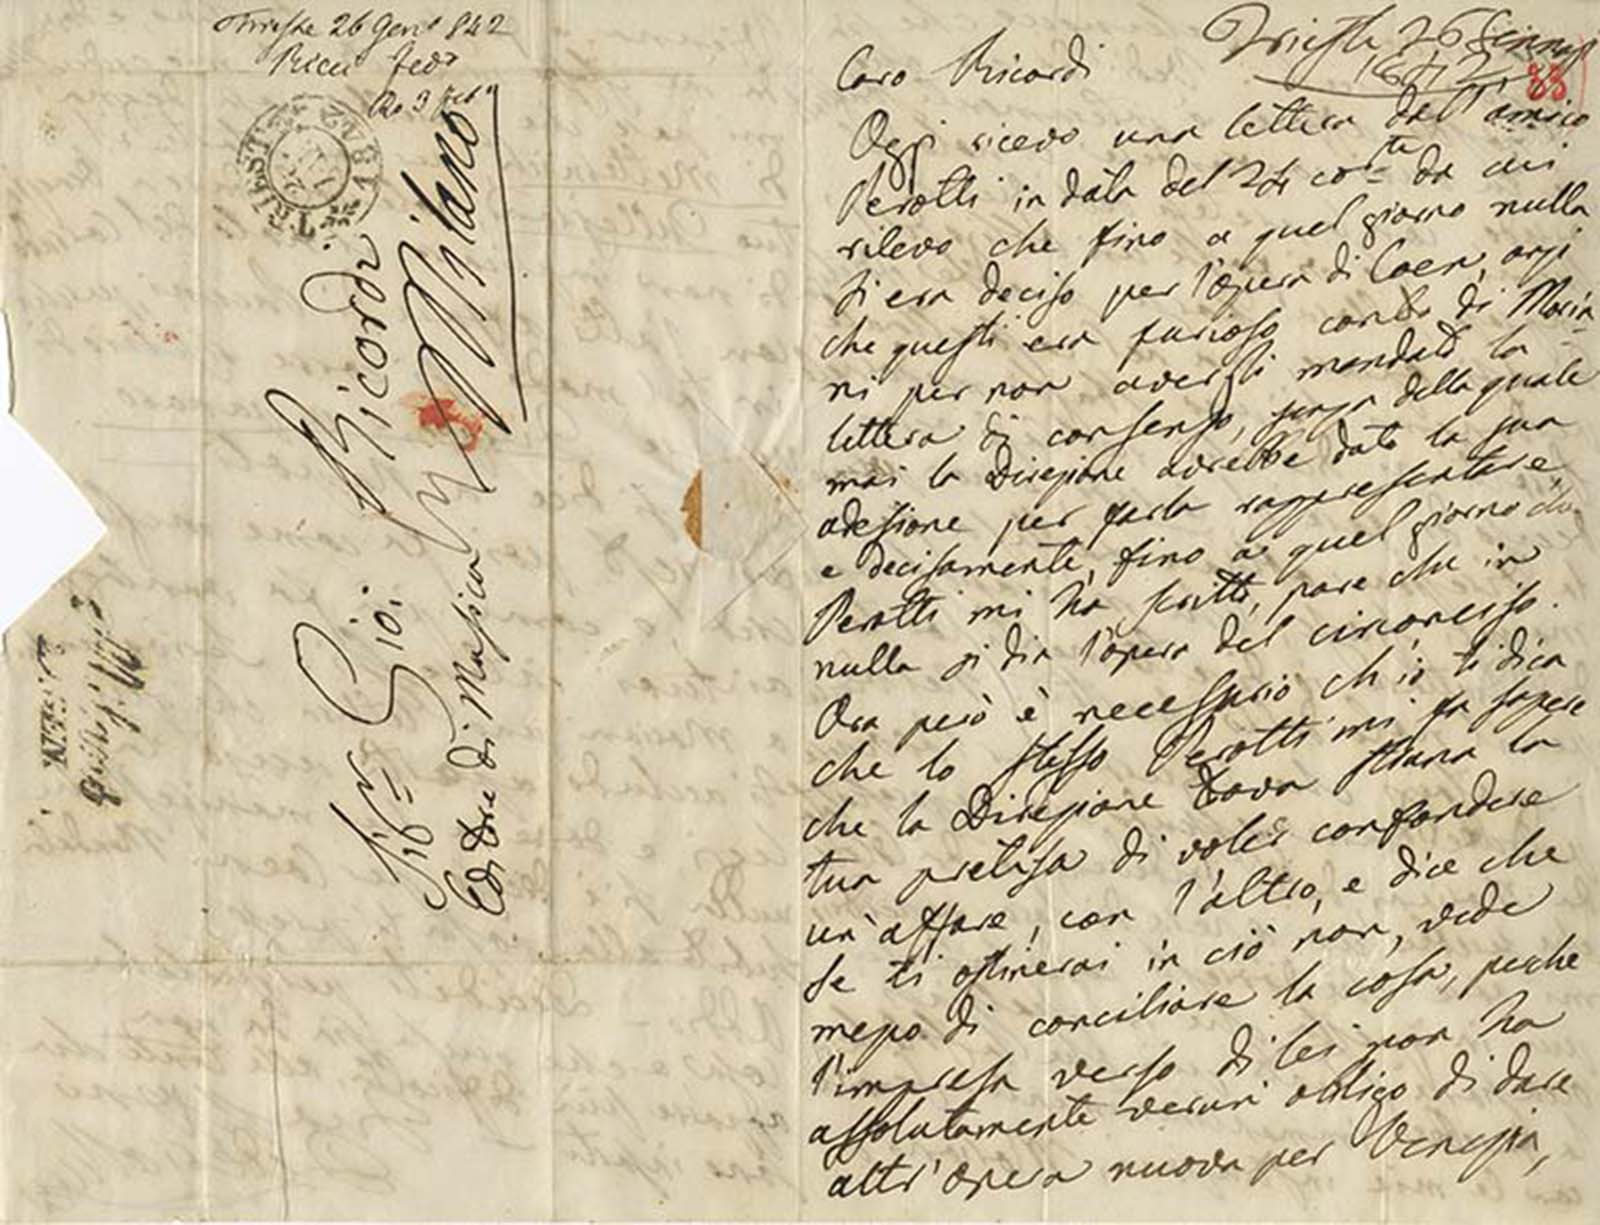 Trieste 26 Gen.o 842
Ricci Fed.o
Ro 3 Feb.o
TRIESTE
Sig.r Gio. Ricordi
Editore di Musica
Milano
Trieste 26 Gennajo
1842
88
Caro Ricordi
Oggi ricevo una lettera dall'amico
Perotti in data del 24 cor.te da cui
rilevo che fino a quel giorno nulla
si era deciso per l'opera di Coen, anzi
che questi era furioso contro di Marin-
ni per non avergli mandato la
lettera di consenso, senza della quale
mai la Direzione avrebbe dato la sua
adesione per farla rappresentare,
e decisamente, fino a quel giorno che
Perotti mi ha scritto, pare che in
nulla si dia l'opera del circonciso.
Ora però è necessario ch'io ti dica
che lo stesso Perotti mi fa sapere
che la Direzione trova strana la
tua pretesa di voler confondere
un'affare, con l'altro, e dice che
se ti ostinerai in ciò non, vede
mezzo di conciliare la cosa, perche
l'impresa verso di lei non ha
assolutamente verun obligo di dare
altr'opera nuova per Venezia,